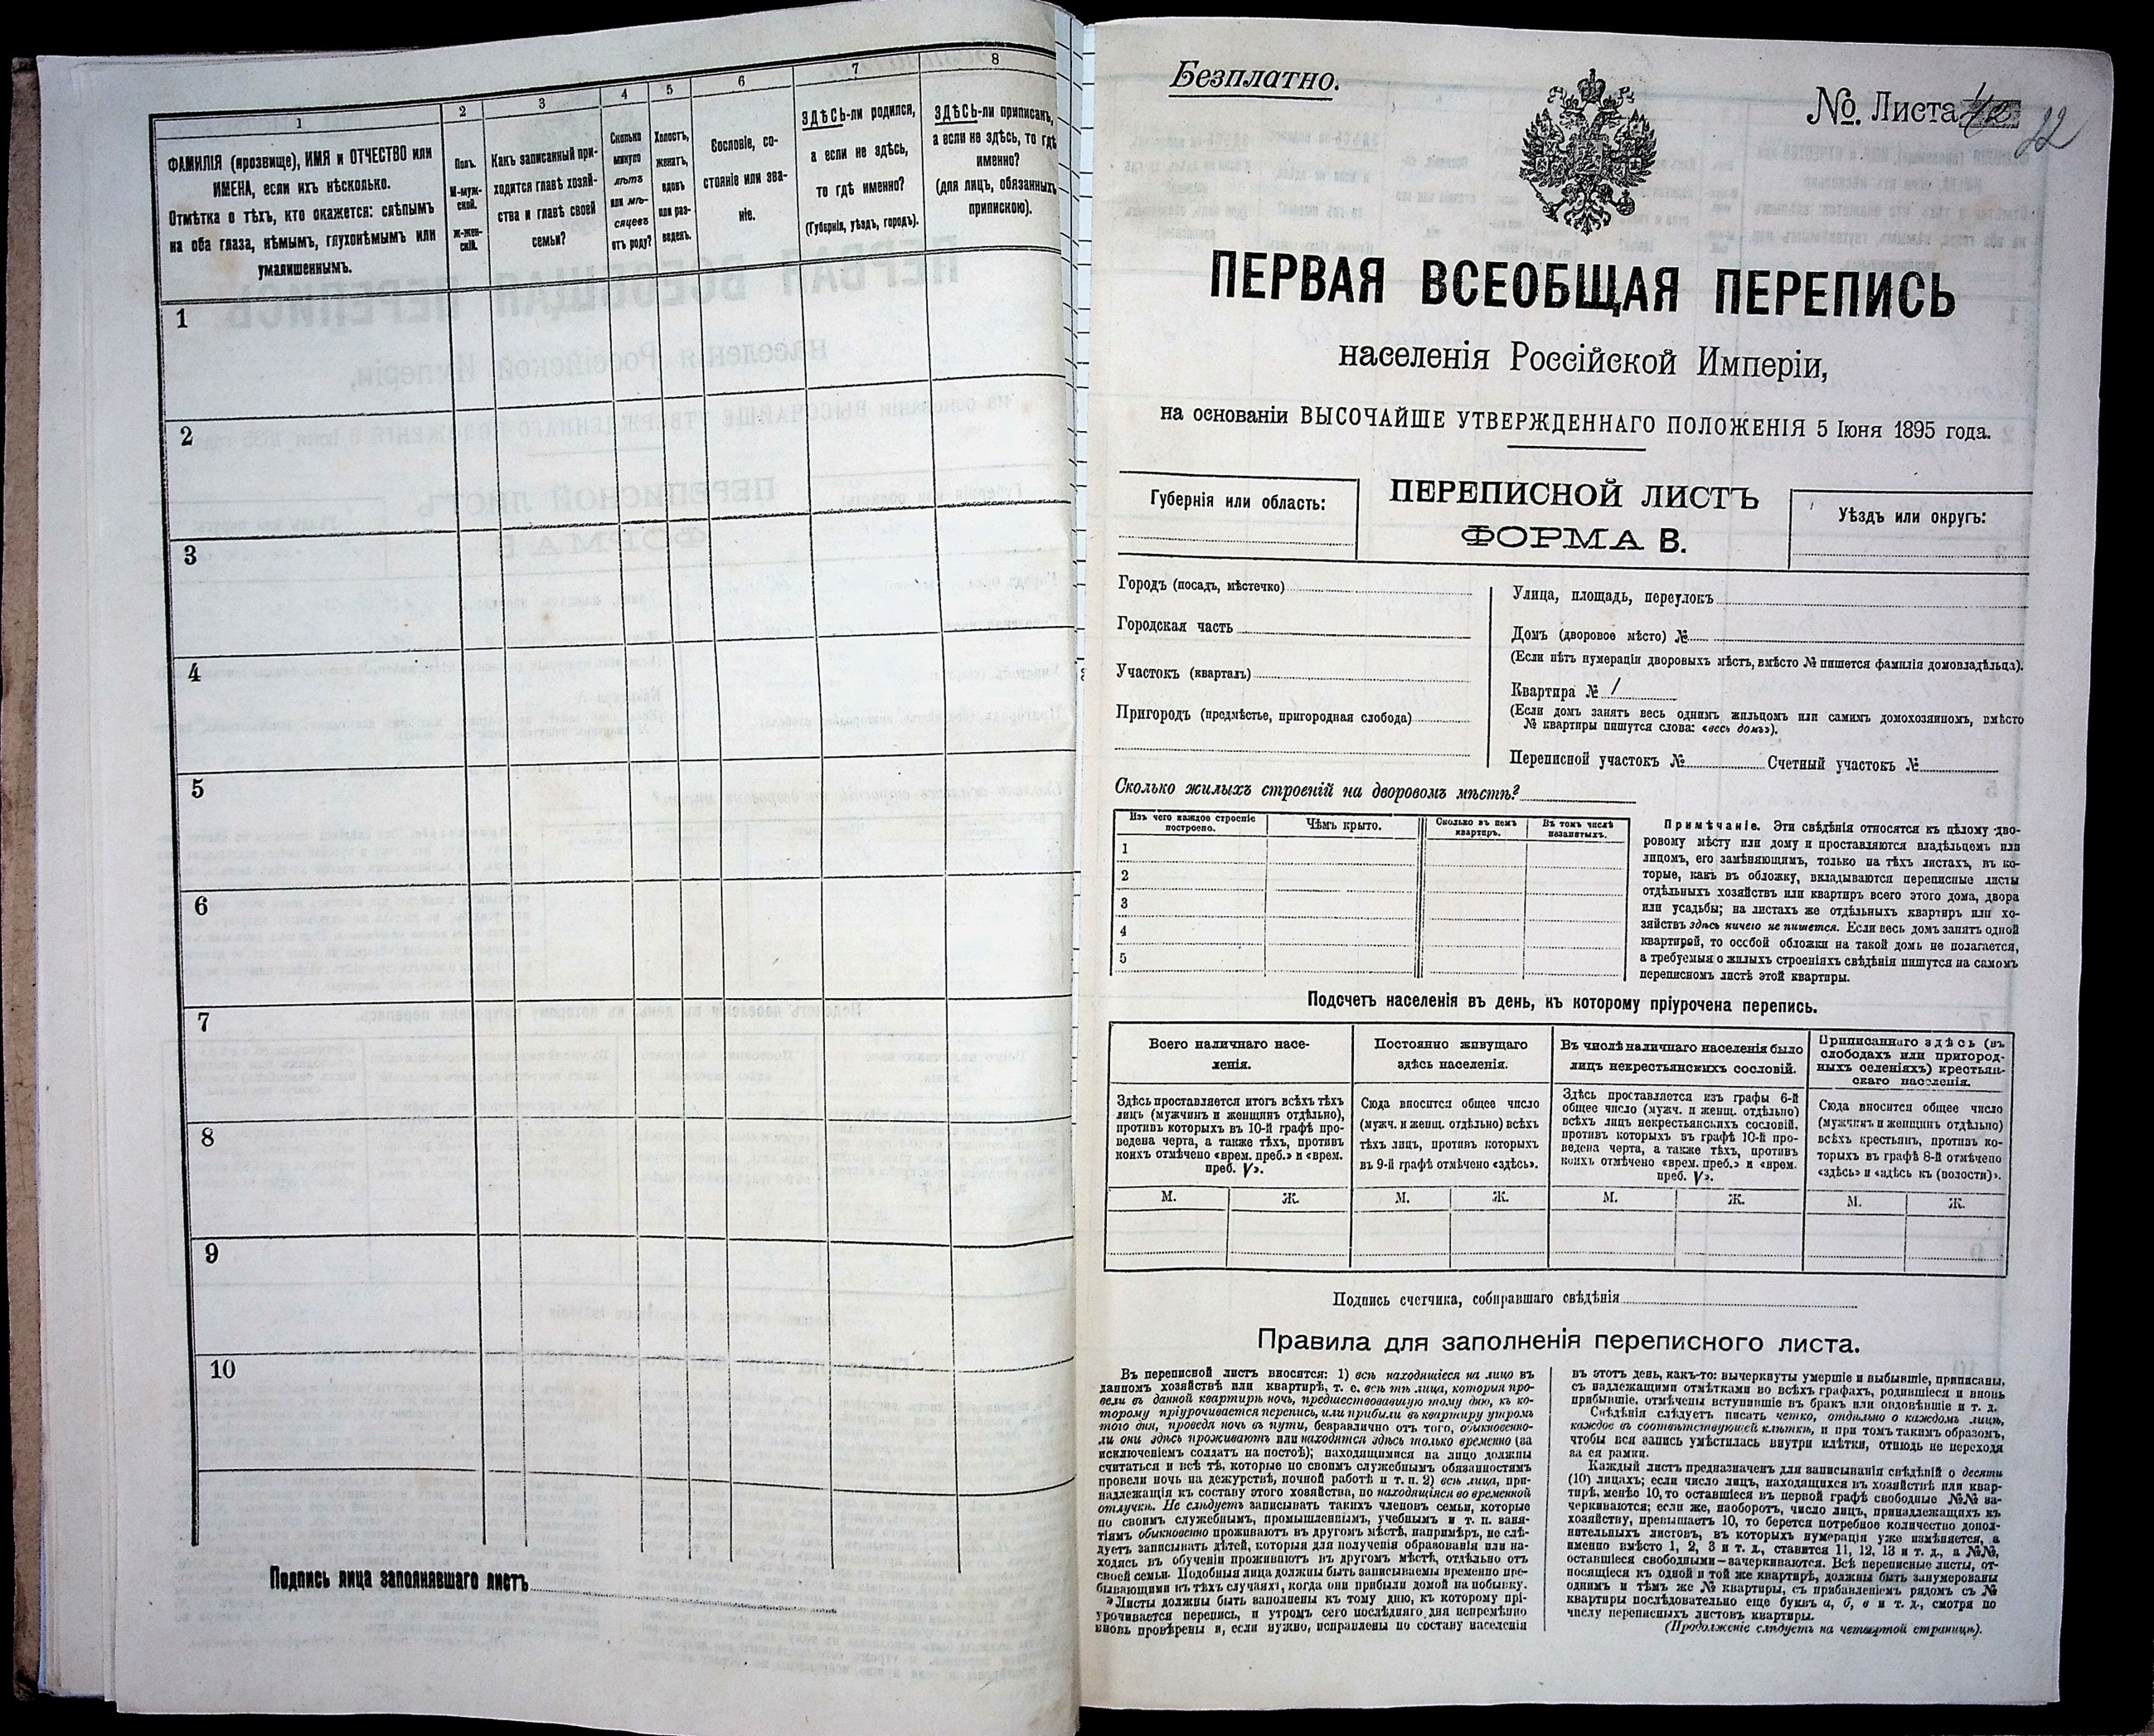 1
2
3
4
5
6
7
8
ФАМИЛІЯ (прозвище), ИМЯ и ОТЧЕСТВО или
ИМЕНА, если ихъ нѣсколько.
Отмѣтка о тѣхъ, кто окажется: слѣпымъ
на оба глаза, нѣмымъ, глухонѣмымъ или
умалишеннымъ.
Полъ.
М-муж-
ской.
Ж-жен-
скій.
Какъ записанный при-
ходится главѣ хозяй-
ства и главѣ своей
семьи?
Сколько
минуло
лѣтъ
или мѣ-
сяцевъ
отъ роду?
Холостъ,
женатъ,
вдовъ
или раз-
веденъ.
Сословіе, со-
стояніе или зва-
ніе.
ЗДѢСЬ-ли родился,
а если не здѣсь,
то гдѣ именно?
(Губернія, уѣздъ, городъ).
ЗДѢСЬ-ли приписанъ,
а если не здѣсь, то гдѣ
именно?
(для лицъ, обязанныхъ
припискою).
1
2
3
4
5
6
7
8
9
10
Подпись лица заполнявшаго листъ
Безплатно.
№. Листа
22
ПЕРВАЯ ВСЕОБЩАЯ ПЕРЕПИСЬ
населенія Россійской Имперіи,
на основаніи ВЫСОЧАЙШЕ УТВЕРЖДЕННАГО ПОЛОЖЕНІЯ 5 Іюня 1895 года.
Губернія или область:
ПЕРЕПИСНОЙ ЛИСТЪ
ФОРМА В.
Уѣздъ или округъ:
Городъ (посадъ, мѣстечко)
Городская часть
Участокъ (кварталъ)
Пригородъ (предмѣстье, пригородная слобода)
Улица, площадь, переулокъ
Домъ (дворовое мѣсто) №
(Если нѣтъ нумераціи дворовыхъ мѣстъ, вмѣсто № пишется фамилія домовладѣльца).
Квартира № 1
(Если домъ занятъ весь однимъ жильцомъ или самимъ домохозяиномъ, вмѣсто
№ квартиры пишутся слова: «весь домъ»).
Переписной участокъ № Счетный участокъ №
Сколько жилыхъ строеній на дворовомъ мѣстѣ?
Изъ чего каждое строеніе
построено.
Чѣмъ крыто.
Сколько въ немъ
квартиръ.
Въ томъ числѣ
незанятыхъ.
1
2
3
4
5
Примѣчаніе. Эти свѣдѣнія относятся къ цѣлому дво-
ровому мѣсту или дому и проставляются владѣльцемъ или
лицомъ, его замѣняющимъ, только на тѣхъ листахъ, въ ко-
торые, какъ въ обложку, вкладываются переписные листы
отдѣльныхъ хозяйствъ или квартиръ всего этого дома, двора
или усадьбы; на листахъ же отдѣльныхъ квартиръ или хо-
зяйствъ здѣсь ничего не пишется. Если весь домъ занятъ одной
квартирой, то особой обложки на такой домъ не полагается,
а требуемыя о жилыхъ строеніяхъ свѣдѣнія пишутся на самомъ
переписномъ листѣ этой квартиры.
Подсчетъ населенія въ день, къ которому пріурочена перепись.
Всего наличнаго насе-
ленія.
Постоянно живущаго
здѣсь населенія.
Въ числѣ наличнаго населенія было
лицъ некрестьянскихъ сословій.
Приписаннаго здѣсь (въ
слободахъ или пригород-
ныхъ селеніяхъ) крестьян-
скаго населенія.
Здѣсь проставляется итогъ всѣхъ тѣхъ
лицъ (мужчинъ и женщинъ отдѣльно),
противъ которыхъ въ 10-й графѣ про-
ведена черта, а также тѣхъ, противъ
коихъ отмѣчено «врем. преб.» и «врем.
преб. V».
Сюда вносится общее число
(мужч. и женщ. отдѣльно) всѣхъ
тѣхъ лицъ, противъ которыхъ
въ 9-й графѣ отмѣчено «здѣсь».
Здѣсь проставляется изъ графы 6-й
общее число (мужч. и женщ. отдѣльно)
всѣхъ лицъ некрестьянскихъ сословій,
противъ которыхъ въ графѣ 10-й про-
ведена черта, а также тѣхъ, противъ
коихъ отмѣчено «врем. преб.» и «врем.
преб. V».
Сюда вносится общее число
(мужчинъ и женщинъ отдѣльно)
всѣхъ крестьянъ, противъ ко-
торыхъ въ графѣ 8-й отмѣчено
«здѣсь» и «здѣсь къ (волости)».
М. Ж. М. Ж. М. Ж. М. Ж.
Подпись счетчика, собиравшаго свѣдѣнія
Правила для заполненія переписного листа.
Въ переписной листъ вносятся: 1) всѣ находящіеся на лицо въ
данномъ хозяйствѣ или квартирѣ, т. е. всѣ тѣ лица, которыя про-
вели въ данной квартирѣ ночь, предшествовавшую тому дню, къ ко-
торому пріурочивается перепись, или прибыли въ квартиру утромъ
того дня, проведя ночь въ пути, безразлично отъ того, обыкновенно-
ли они здѣсь проживаютъ или находятся здѣсь только временно (за
исключеніемъ солдатъ на постоѣ); находящимися на лицо должны
считаться и всѣ тѣ, которые по своимъ служебнымъ обязанностямъ
провели ночь на дежурствѣ, ночной работѣ и т. п. 2) всѣ лица, при-
надлежащія къ составу этого хозяйства, но находящіяся во временной
отлучкѣ. Не слѣдуетъ записывать такихъ членовъ семьи, которые
по своимъ служебнымъ, промышленнымъ, учебнымъ и т. п. заня-
тіямъ обыкновенно проживаютъ въ другомъ мѣстѣ, напримѣръ, не слѣ-
дуетъ записывать дѣтей, которыя для полученія образованія или на-
ходясь въ обученіи проживаютъ въ другомъ мѣстѣ, отдѣльно отъ
своей семьи. Подобныя лица должны быть записываемы временно пре-
бывающими въ тѣхъ случаяхъ, когда они прибыли домой на побывку.
Листы должны быть заполнены къ тому дню, къ которому прі-
урочивается перепись, и утромъ сего послѣдняго дня непремѣнно
вновь провѣрены и, если нужно, исправлены по составу населенія
въ этотъ день, какъ-то: вычеркнуты умершіе и выбывшіе, приписаны,
съ надлежащими отмѣтками во всѣхъ графахъ, родившіеся и вновь
прибывшіе, отмѣчены вступившіе въ бракъ или овдовѣвшіе и т. д.
Свѣдѣнія слѣдуетъ писать четко, отдѣльно о каждомъ лицѣ,
каждое въ соотвѣтствующей клѣткѣ, и при томъ такимъ образомъ,
чтобы вся запись умѣстилась внутри клѣтки, отнюдь не переходя
за ея рамки.
Каждый листъ предназначенъ для записыванія свѣдѣній о десяти
(10) лицахъ; если число лицъ, находящихся въ хозяйствѣ или квар-
тирѣ, менѣе 10, то оставшіеся въ первой графѣ свободные №№ за-
черкиваются; если же, наоборотъ, число лицъ, принадлежащихъ къ
хозяйству, превышаетъ 10, то берется потребное количество допол-
нительныхъ листовъ, въ которыхъ нумерація уже измѣняется, а
именно вмѣсто 1, 2, 3 и т. д., ставится 11, 12, 13 и т. д., а №№,
оставшіеся свободными—зачеркиваются. Всѣ переписные листы, от-
носящіеся къ одной и той же квартирѣ, должны быть занумерованы
однимъ и тѣмъ же № квартиры, съ прибавленіемъ рядомъ съ №
квартиры послѣдовательно еще буквъ а, б, в и т. д., смотря по
числу переписныхъ листовъ квартиры.
(Продолженіе слѣдуетъ на четвертой страницѣ).